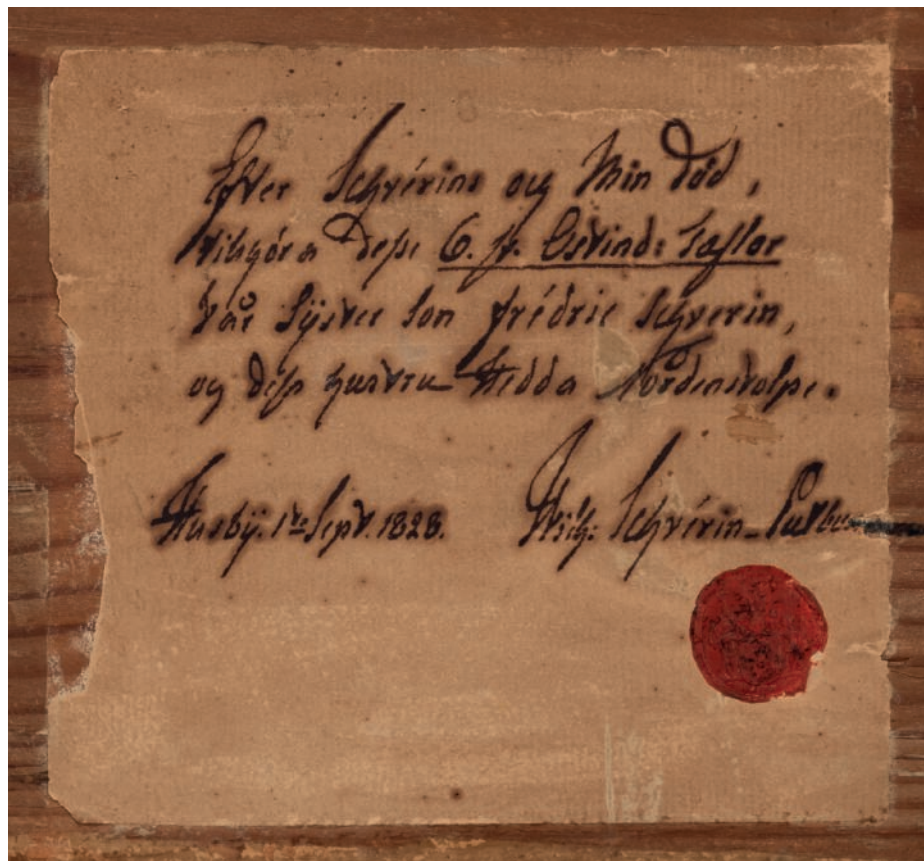 Efter Schvérins og Min död,
tilhöra desse 6. st. Ostind: Taflor
vår Sÿster Son frédric Schverin,
og dess hustru Hedda Nordenskolpe.
Husbÿ. 1te Sept. 1828. Wilh: Schvérin_Putbus